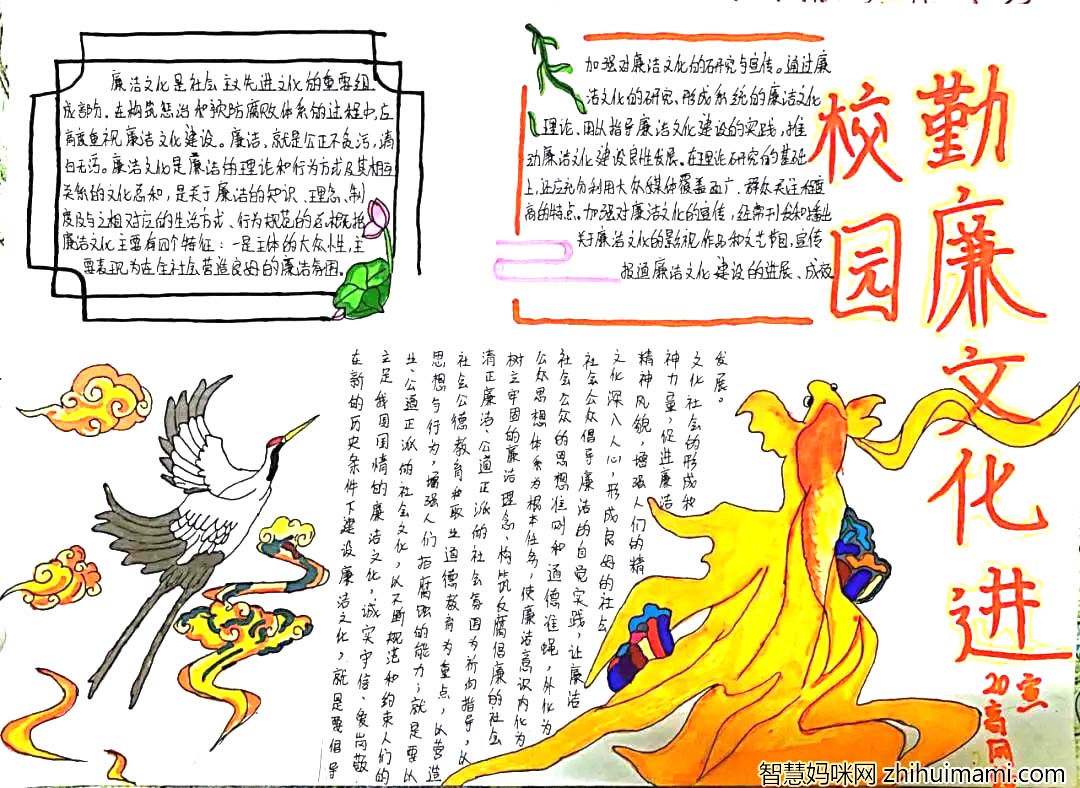 勤廉文化进
校园
廉洁文化是社会主义先进文化的重要组
成部分。在构筑惩治和预防腐败体系的过程中,应
高度重视廉洁文化建设。廉洁,就是公正不贪污,清
白无污。廉洁文化是廉洁的理论和行为方式及其相互
关系的文化总和,是关于廉洁的知识、理念、制
度及与之相对应的生活方式、行为规范的总概括
廉洁文化主要有四个特征:一是主体的大众性,主
要表现为在全社会营造良好的廉洁氛围。
加强对廉洁文化的研究与宣传。通过廉
洁文化的研究,形成系统的廉洁文化
理论,用以指导廉洁文化建设的实践,推
动廉洁文化建设良性发展。在理论研究的基础
上,还应充分利用大众媒体覆盖面广、群众关注程度
高的特点。加强对廉洁文化的宣传,经常刊发和播出
关于廉洁文化的影视作品和文艺节目,宣传
报道廉洁文化建设的进展、成效
在新的历史条件下建设廉洁文化,就是要倡导
立足我国国情的廉洁文化,诚实守信、崇尚敬
业、公道正派的社会文化,以不断规范和约束人们的
思想与行为,增强人们拒腐蚀的能力;就是要以
社会公德教育和职业道德教育为重点,以营造
清正廉洁、公道正派的社会氛围为价值指导,以
树立牢固的廉洁理念、构筑反腐倡廉的社会
公众思想体系为根本任务,使廉洁意识内化为
社会公众的思想准则和道德准绳,外化为
社会公众倡导廉洁的自觉实践,让廉洁
文化深入人心,形成良好的社会
精神风貌,增强人们的精
神力量,促进廉洁
文化社会的形成和
发展。
智慧妈咪网 zhihuimami.com